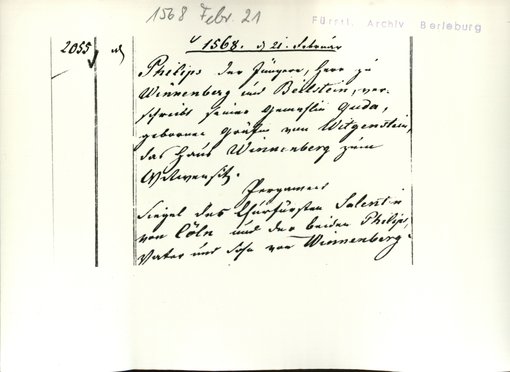 1568 Febr. 21
Fürstl. Archiv Berleburg
2055
1568. d 21. Februar
Philips der Jüngere, Herr zu
Winnenberg und Beilstein, ver-
schreibt seiner Gemahlin Guda,
geborner Gräfin von Witgenstein,
das Haus Winnenberg zum
Witwensitz.
Pergament
Siegel des Churfürsten Salentin
von Cöln und der beiden Philips,
Vater und Sohn von Winnenberg.